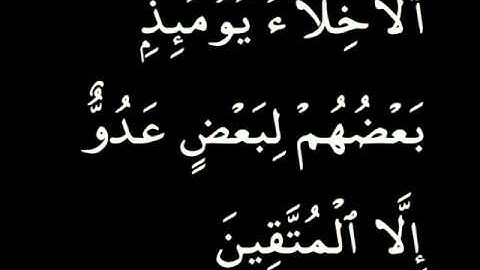 ٱلْأَخِلَّآءُ يَوْمَئِذٍۭ
بَعْضُهُمْ لِبَعْضٍ عَدُوٌّ
إِلَّا ٱلْمُتَّقِينَ